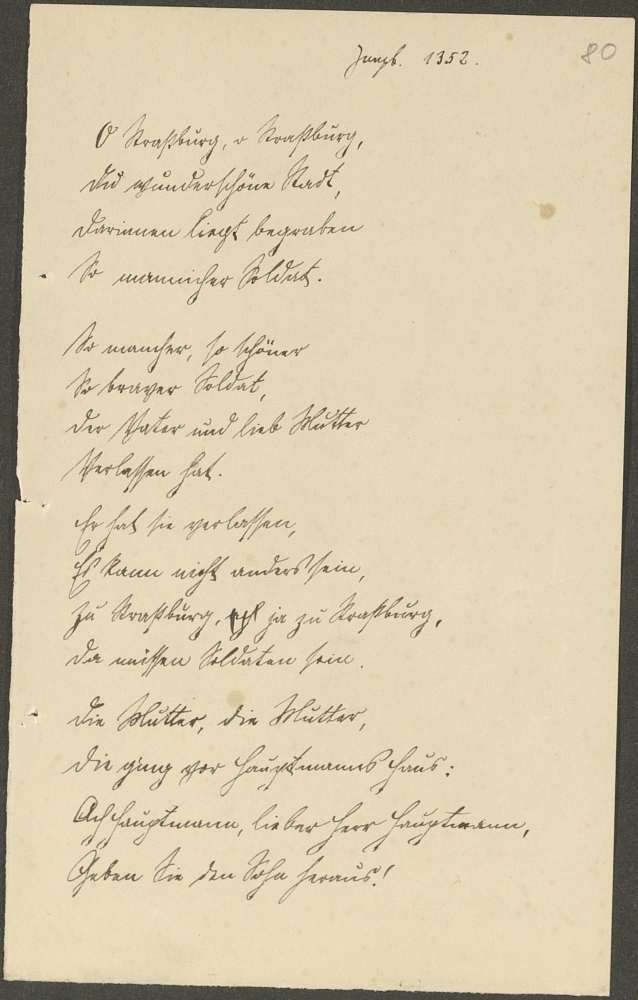 80
1352.
O Straßburg, o Straßburg,
Du wunderschöne Stadt,
Darinnen liegt begraben
So mannicher Soldat.
So mancher, so schöner
So braver Soldat,
Der Vater und lieb Mutter
Verlassen hat.
Er hat sie verlassen,
Es kann nicht anders sein,
Zu Straßburg, ja zu Straßburg,
Da müssen Soldaten sein.
Die Mutter, die Mutter,
Die ging vor Hauptmanns Haus:
Ach Hauptmann, lieber Herr Hauptmann,
Geben Sie den Sohn heraus!